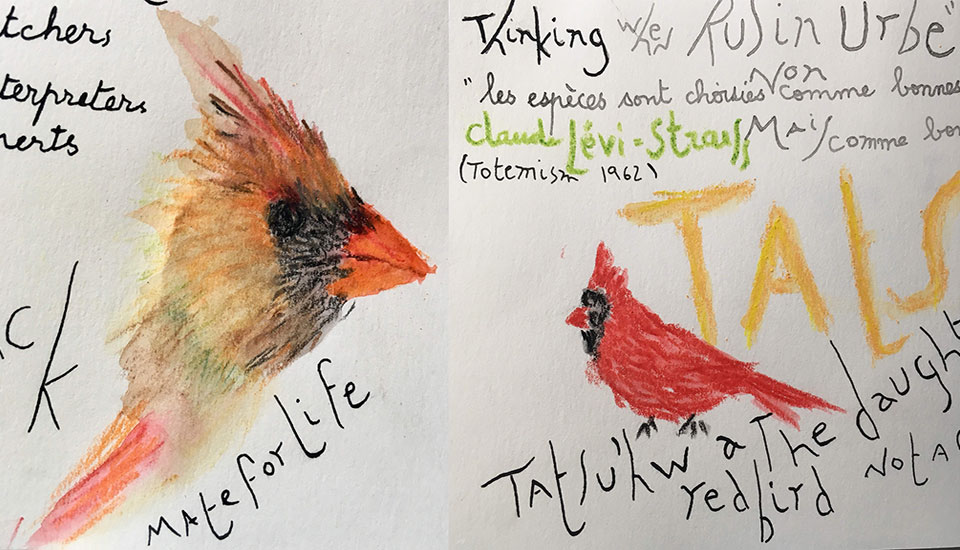 tchers
terpreters
nerts
C
K
MATe for Life
Thinking when Rus in Urbe"
"les espèces sont choisies Non comme bonnes
claude Lévi-Strauss Mais comme bon
(Totemism 1962)
TALS
Tatsu'hwa The daught
redbird Not A